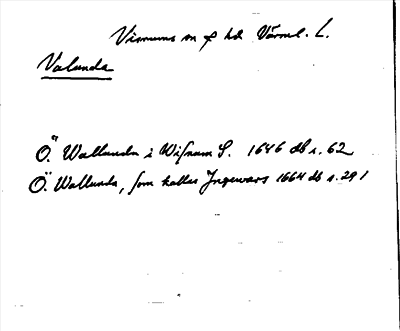 Visnums sn o hd Värml. L.
Valunda
Ö. Wallunda i Wissnum S. 1646 db s. 62
Ö. Wallunda, som kallas Ingewars 1664 db s. 291